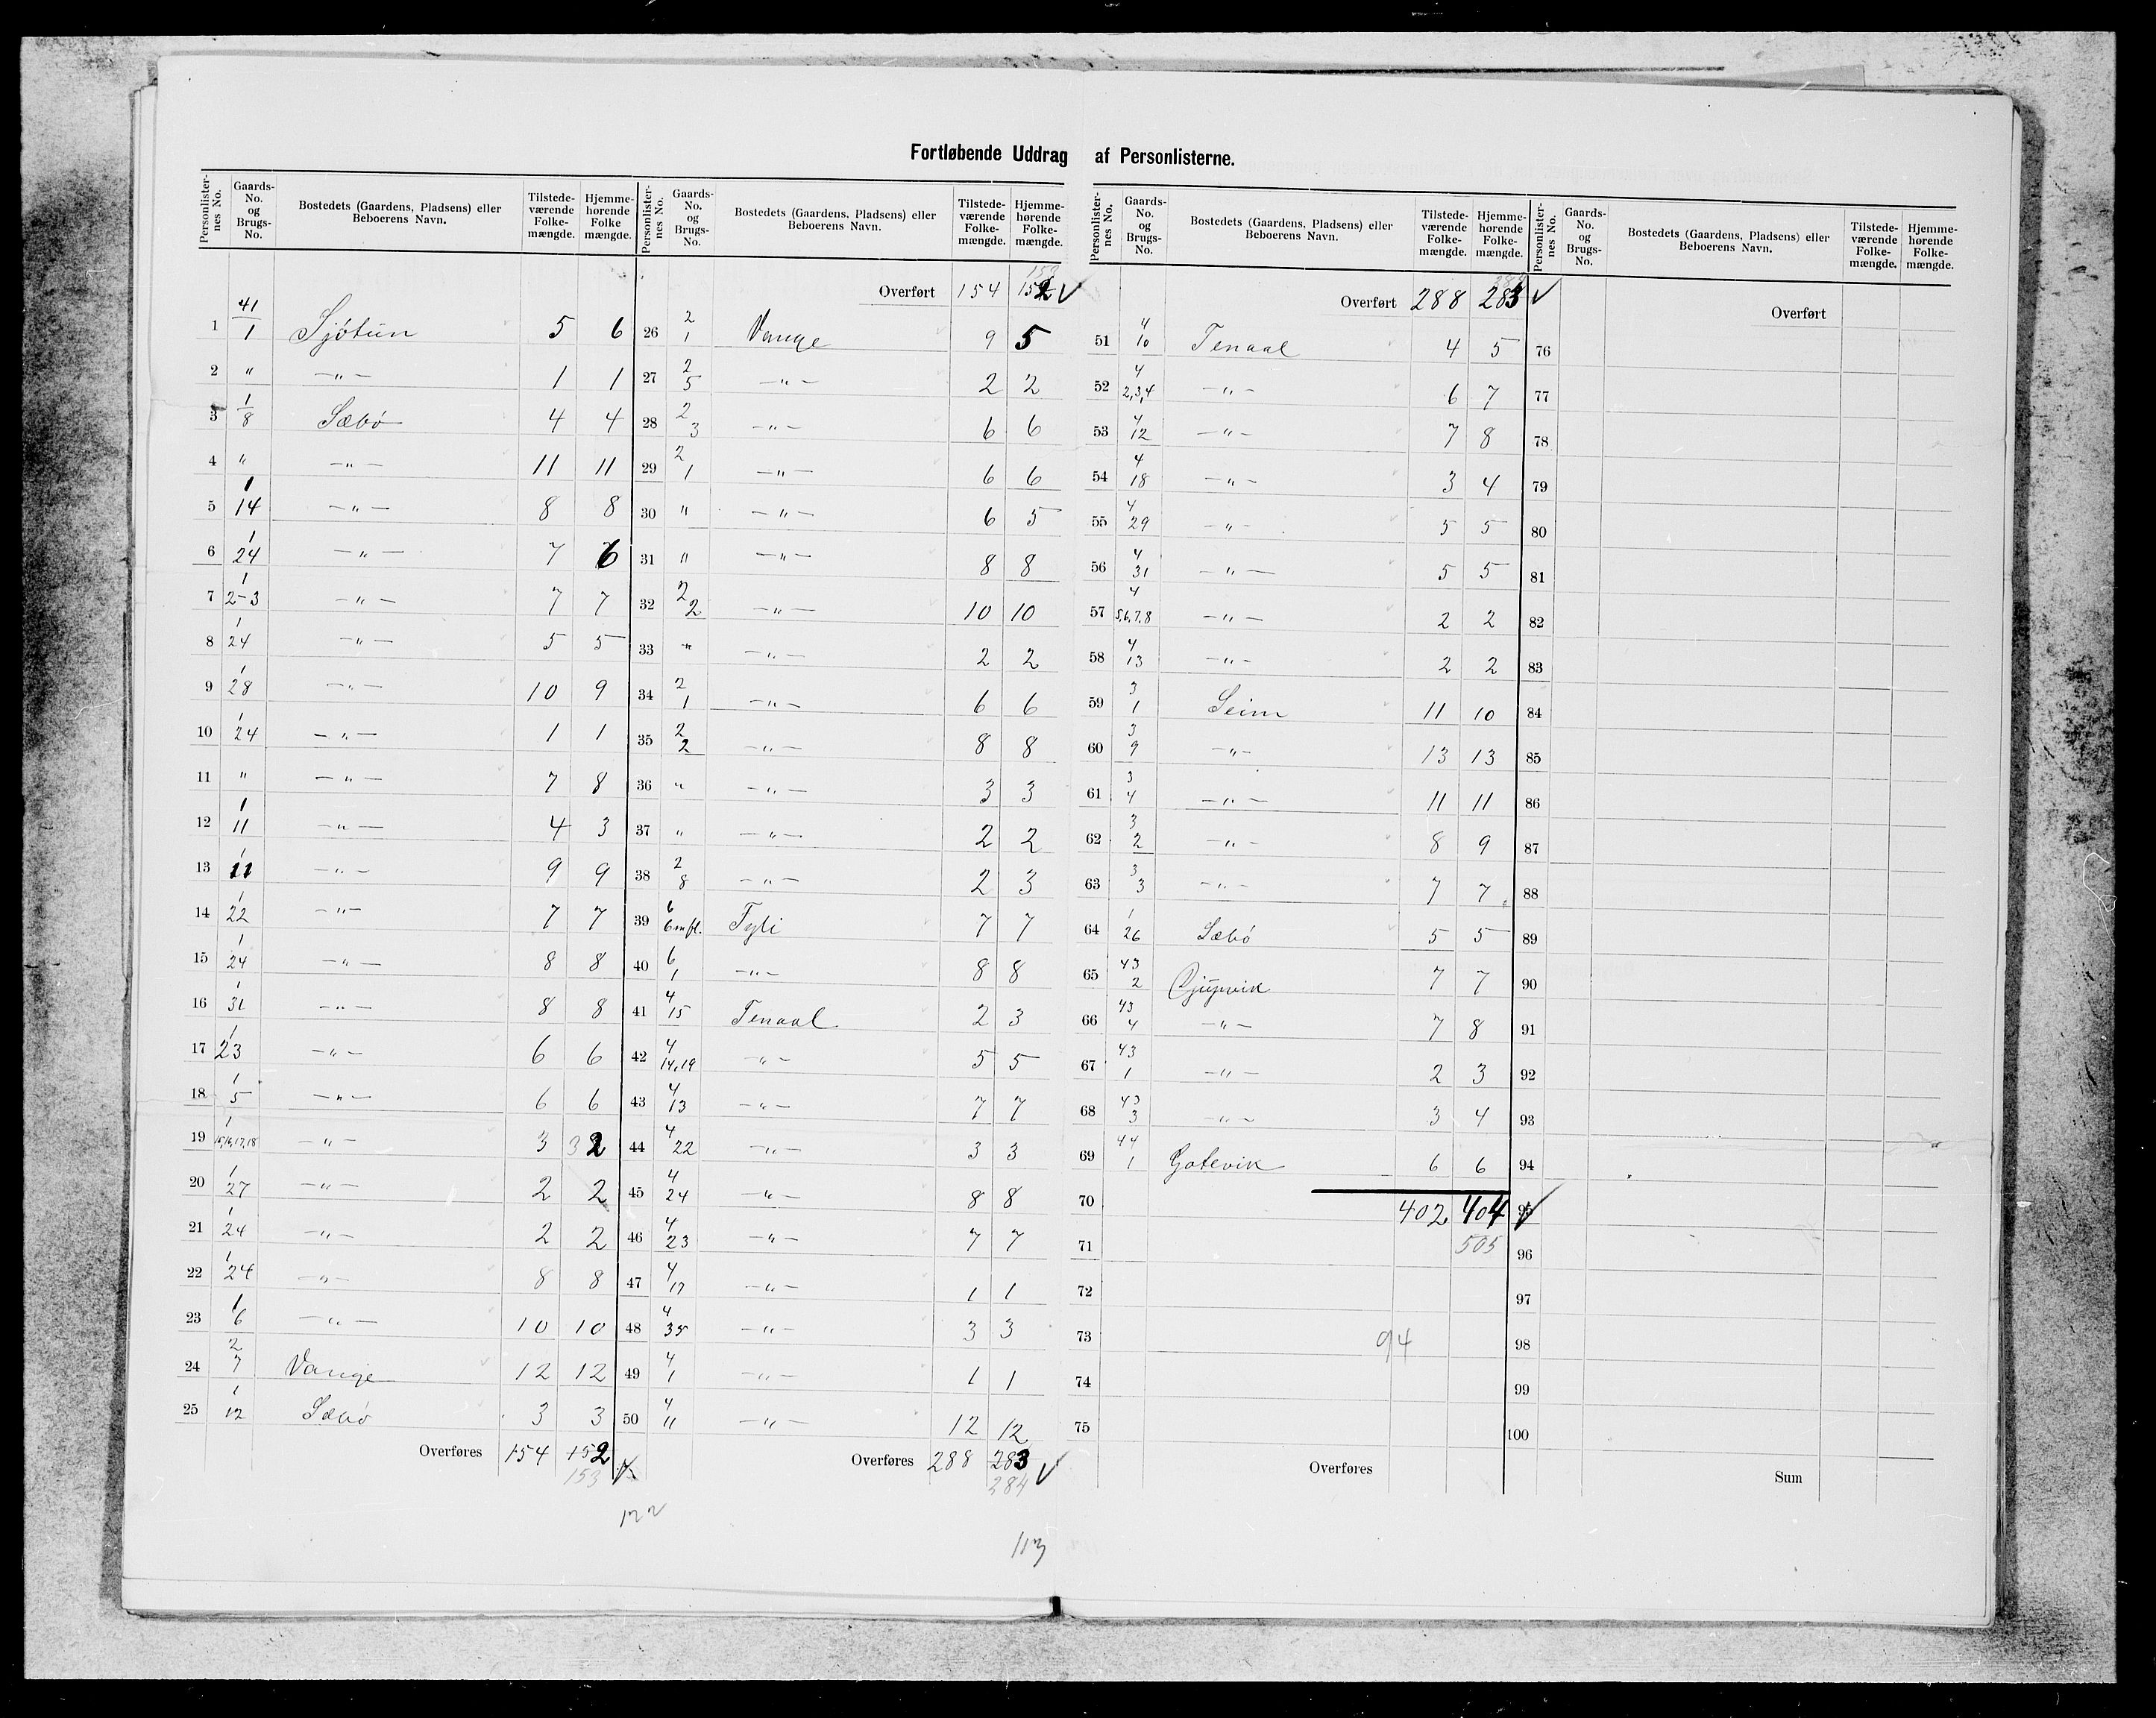 Fortløbende Uddrag af Personlisterne.
Personlisternes No. Gaards-No. og Brugs-No. Bostedets (Gaardens, Pladsens) eller Beboerens Navn. Tilstedeværende Folkemængde. Hjemmehørende Folkemængde.
1 41/1 Sjötun 5 6
2 " —"— 1 1
3 1/8 Sæbö 4 4
4 " —"— 11 11
5 1/14 —"— 8 8
6 1/24 —"— 7 6
7 1/2-3 —"— 7 7
8 1/24 —"— 5 5
9 1/28 —"— 10 9
10 1/24 —"— 1 1
11 " —"— 7 8
12 1/11 —"— 4 3
13 1/11 —"— 9 9
14 1/22 —"— 7 7
15 1/24 —"— 8 8
16 1/31 —"— 8 8
17 1/23 —"— 6 6
18 1/5 —"— 6 6
19 1/15,16,17,18 —"— 3 3 2
20 1/27 —"— 2 2
21 1/24 —"— 2 2
22 1/24 —"— 8 8
23 1/6 —"— 10 10
24 2/7 Vange 12 12
25 1/12 Sæbö 3 3
Overføres 154 152
153
122
Personlisternes No. Gaards-No. og Brugs-No. Bostedets (Gaardens, Pladsens) eller Beboerens Navn. Tilstedeværende Folkemængde. Hjemmehørende Folkemængde.
153
Overført 154 152
26 2/1 Vange 9 5
27 2/5 —"— 2 2
28 2/3 —"— 6 6
29 2/1 —"— 6 6
30 " —"— 6 5
31 " —"— 8 8
32 2/2 —"— 10 10
33 " —"— 2 2
34 2/1 —"— 6 6
35 2/2 —"— 8 8
36 " —"— 3 3
37 " —"— 2 2
38 2/8 —"— 2 3
39 6/6 mfl. Fyli 7 7
40 6/1 —"— 8 8
41 4/15 Tenaal 2 3
42 4/14,19 —"— 5 5
43 4/13 —"— 7 7
44 4/22 —"— 3 3
45 4/24 —"— 8 8
46 4/23 —"— 7 7
47 4/17 —"— 1 1
48 4/35 —"— 3 3
49 4/1 —"— 1 1
50 4/11 —"— 12 12
Overføres 288 283
284
113
Personlisternes No. Gaards-No. og Brugs-No. Bostedets (Gaardens, Pladsens) eller Beboerens Navn. Tilstedeværende Folkemængde. Hjemmehørende Folkemængde.
284
Overført 288 283
51 4/10 Tenaal 4 5
52 4/2,3,4 —"— 6 7
53 4/12 —"— 7 8
54 4/18 —"— 3 4
55 4/29 —"— 5 5
56 4/31 —"— 5 5
57 4/5,6,7,8 —"— 2 2
58 4/13 —"— 2 2
59 3/1 Seim 11 10
60 3/9 —"— 13 13
61 3/4 —"— 11 11
62 3/2 —"— 8 9
63 3/3 —"— 7 7
64 1/26 Sæbö 5 5
65 43/2 Djupvik 7 7
66 43/4 —"— 7 8
67 43/1 —"— 2 3
68 43/3 —"— 3 4
69 44/1 Gotevik 6 6
70 402 404
71 505
72
73 94
74
75
Overføres
Personlisternes No. Gaards-No. og Brugs-No. Bostedets (Gaardens, Pladsens) eller Beboerens Navn. Tilstedeværende Folkemængde. Hjemmehørende Folkemængde.
Overført
76
77
78
79
80
81
82
83
84
85
86
87
88
89
90
91
92
93
94
95
96
97
98
99
100
Sum